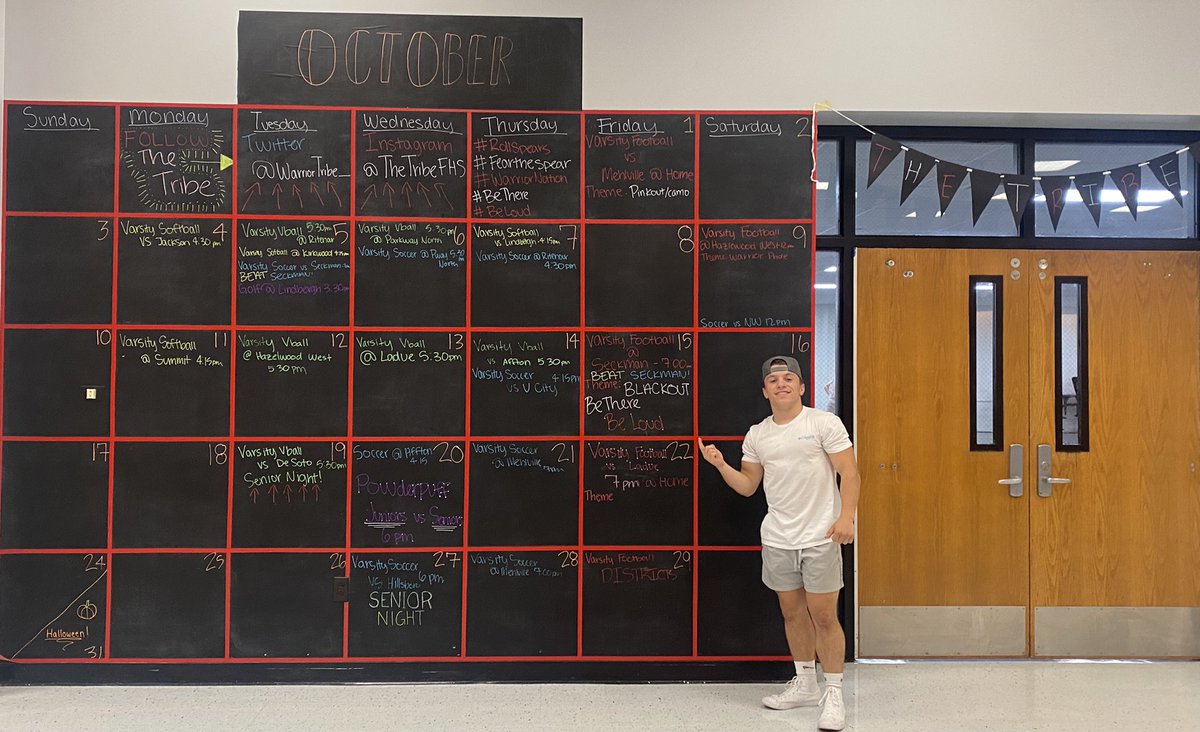 OCTOBER
Sunday
Monday
FOLLOW
The
Tribe
Tuesday
Twitter
@WarriorTribe_
Wednesday
Instagram
@TheTribeFHS
Thursday
#RollSpears
#Fearthespear
#WarriorNation
#BeThere
#BeLoud
Friday 1
Varsity Football
vs
Mehlville @ Home
Theme: Pinkout/camo
Saturday 2
THE TRIBE
3
4
Varsity Softball
vs Jackson 4:30pm
5
Varsity Vball 5:30pm
@ Ritenour
Varsity Softball @ Kirkwood
Varsity Soccer vs Seckman
BEAT SECKMAN
Golf @ Lindbergh 3:30pm
6
Varsity Vball 5:30pm
@ Parkway North
Varsity Soccer @ Pkwy 5:30pm
North
7
Varsity Softball
vs Lindbergh 4:15pm
Varsity Soccer @ Ritenour
4:30pm
8
9
Varsity Football
@ Hazelwood West
Theme: Warrior Pride
Soccer vs NW 12pm
10
11
Varsity Softball
@ Summit 4:15pm
12
Varsity Vball
@ Hazelwood West
5:30pm
13
Varsity Vball
@ Ladue 5:30pm
14
Varsity Vball
vs Affton 5:30pm
Varsity Soccer 4:15pm
vs U City
15
Varsity Football
@
Seckman - 7:00
BEAT SECKMAN!
Theme: BLACKOUT
BeThere
Be Loud
16
17
18
19
Varsity Vball
vs DeSoto 5:30pm
Senior Night!
20
Soccer @ Affton
4:15
Powderpuff
Juniors vs Seniors
6pm
21
Varsity Soccer
@ Mehlville
22
Varsity Football
vs Ladue
7pm @ Home
Theme
24
Halloween!
31
25
26
27
Varsity Soccer
vs Hillsboro 6pm
SENIOR
NIGHT
28
Varsity Soccer
@ Mehlville 7:00pm
29
Varsity Football
DISTRICTS